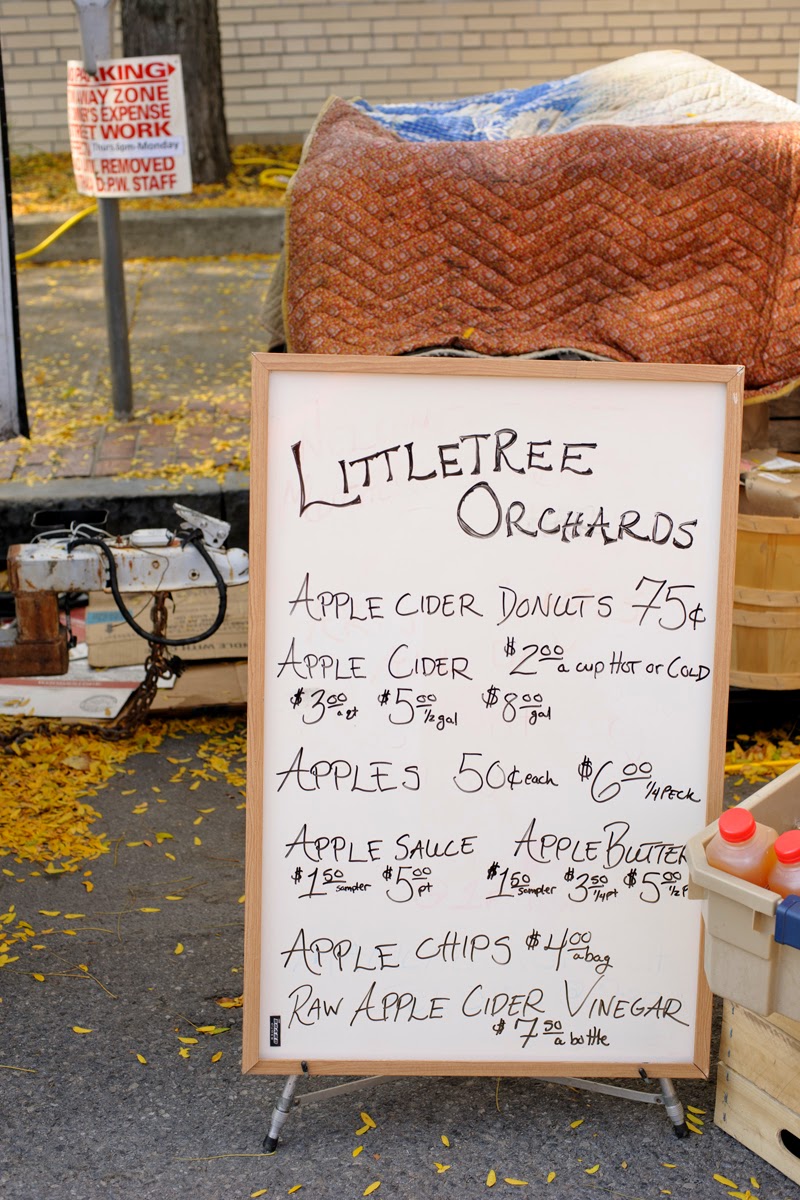 PARKING
ZONE
EXPENSE
WORK
Thurs 6pm-Monday
REMOVED
D.P.W. STAFF
LITTLETREE
ORCHARDS
APPLE CIDER DONUTS 75¢
APPLE CIDER $2.00 a CUP HOT or COLD
$3.00 a qt $5.00 1/2 gal $8.00 gal
APPLES 50¢ each $6.00 1/4 PECK
APPLE SAUCE APPLE BUTTER
$1.50 sampler $5.00 pt $1.50 sampler $3.50 1/4 pt $5.00 1/2 P
APPLE CHIPS $4.00 a bag
RAW APPLE CIDER VINEGAR
$7.50 a bottle